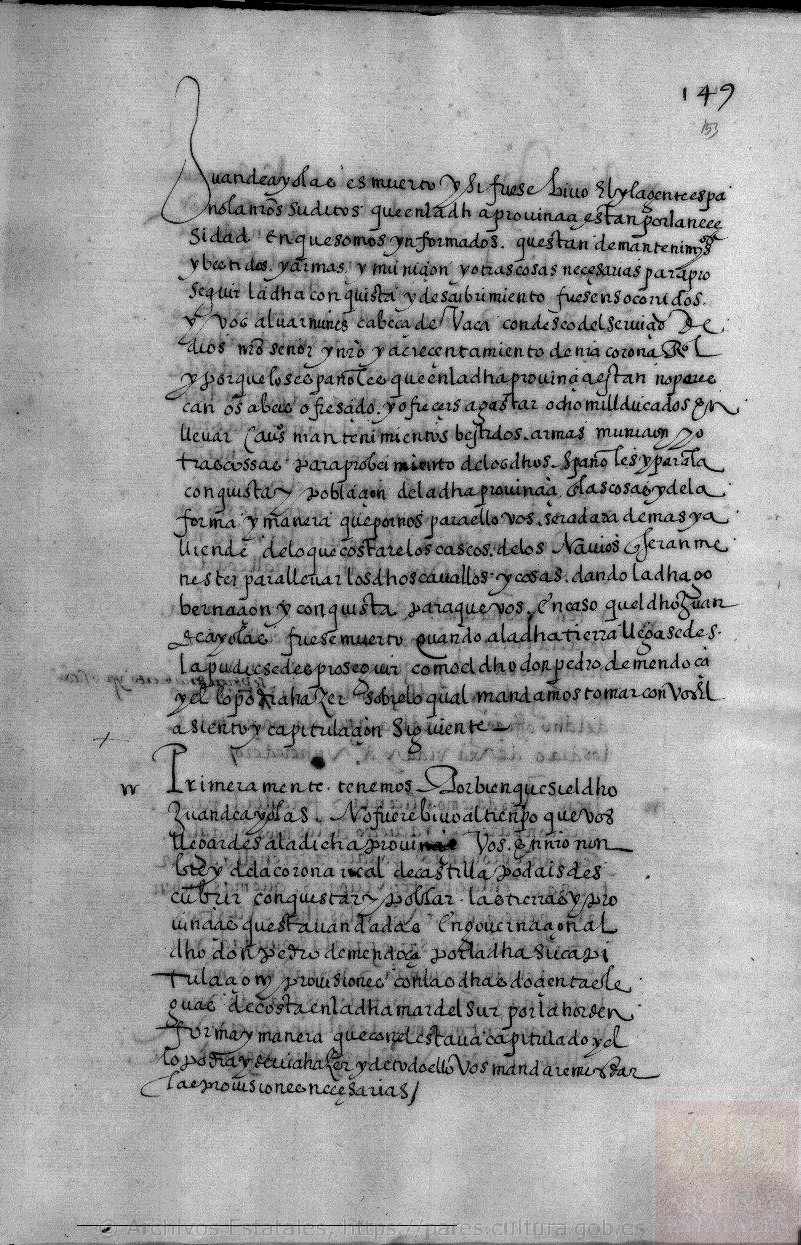 149
153
Juan de ayolas es muerto y si fuese bivo el y la gente espa
ñola nros suditos que en la dha provincia estan por la nece
sidad en que somos ynformados. questan de mantenimyos
y bestidos. y armas. y municion y otras cosas necesarias para pro
seguir la dha conquista y descubrimiento fuesen socorridos.
y vos alvar nunes cabeça de Vaca con deseo del servicio De
dios nro señor y nro y acrecentamiento de nra corona Rl
y porque los españoles que en la dha provincia estan no peres
can os abeis ofresçido. y ofreceis a gastar ocho mill ducados en
llevar cavs mantenimientos bestidos. armas municion y o
tras cossas para probeimiento de los dhos. Españoles y para la
conquista y poblaçon de la dha provincia, e las cosas y de la
forma y manera que por nos para ello vos. sera dada demas y a
lliende de lo que costare los cascos. de los Navios q seran me
nester para llevar los dhos cavallos y cosas. dando la dha go
bernacion y conquista para que vos, en caso quel dho Juan
de ayolas fuese muerto quando a la dha tierra llegasedes.
la pudiesedes proseguir como el dho don pedro de mendoça
y el lo podria hazer sobre lo qual mandamos tomar con Vos el
asiento y capitulaçion siguiente
Primeramente. tenemos Por bien que si el dho
Juan de ayolas. No fuere bivo al tienpo que vos
llegardes a la dicha provincia Vos. en nro non
bre y de la corona real de castilla podais des
cubrir conquistar y poblar. las tierras y pro
vincias questavan dadas en governacion al
dho don pedro de mendoça por la dha su capi
tulacion y provisiones con las dhas dozientas le
guas de costa en la dha mar del sur por la horden
forma y manera que con el estava capitulado y el
lo podria y devia hazer y de todo ello Vos mandaremos dar
las provisiones necesarias/
© Archivos Estatales, https://pares.cultura.gob.es